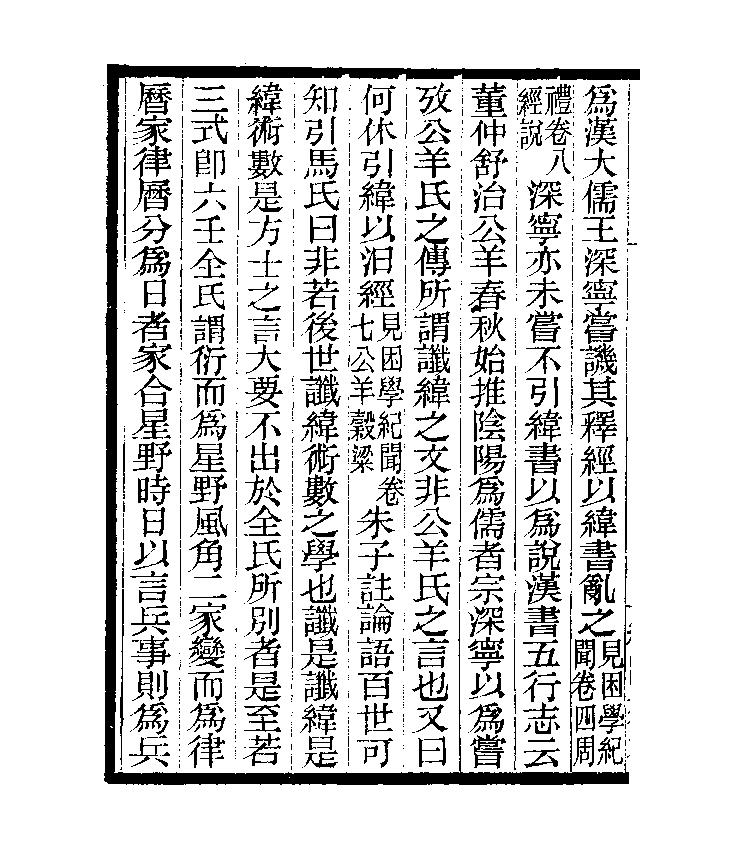 爲漢大儒王深寧嘗譏其釋經以緯書亂之見困學紀聞卷四周
禮卷八經說深寧亦未嘗不引緯書以爲說漢書五行志云
董仲舒治公羊春秋始推陰陽爲儒者宗深寧以爲嘗
攷公羊氏之傳所謂讖緯之文非公羊氏之言也又曰
何休引緯以汨經見困學紀聞卷七公羊穀梁朱子註論語百世可
知引馬氏曰非若後世讖緯術數之學也讖是讖緯是
緯術數是方士之言大要不出於全氏所别者是至若
三式卽六壬全氏謂衍而爲星野風角二家變而爲律
曆家律曆分爲日者家合星野時日以言兵事則爲兵